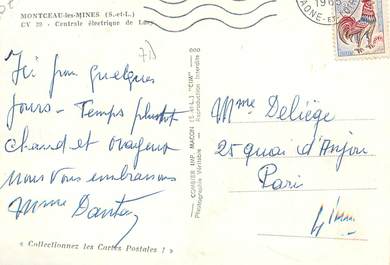 MONTCEAU-les-MINES (S.-et-L.)
CY 28 - Centrale électrique de
71
Ici pour quelques
jours - Temps plutôt
chaud et orageux
nous vous embrassons
Mme
« Collectionnez les Cartes Postales ! »
COMBIER IMP. MACON (S.-et-L.) "CIM"
Photographie Véritable - Reproduction Interdite
SAONE-ET-LOIRE
Mme Deliège
25 quai d'Anjou
Paris
4ème